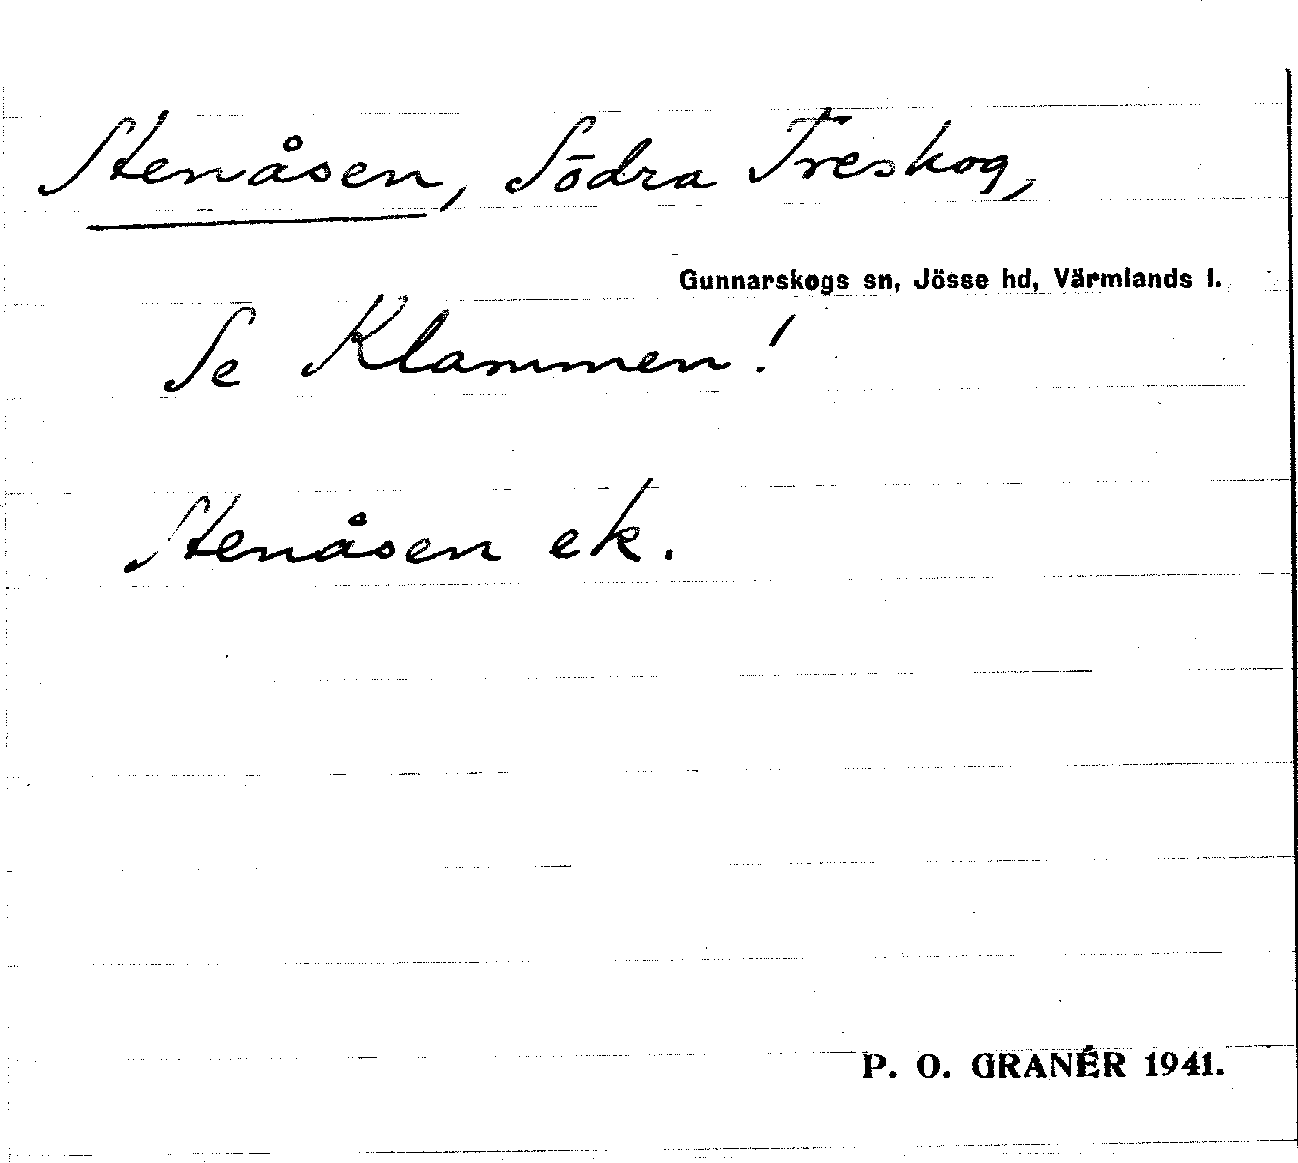 Stenåsen, Södra Treskog,
Gunnarskogs sn, Jösse hd, Värmlands l.
Se Klammen!
Stenåsen ek.
P. O. GRANÉR 1941.